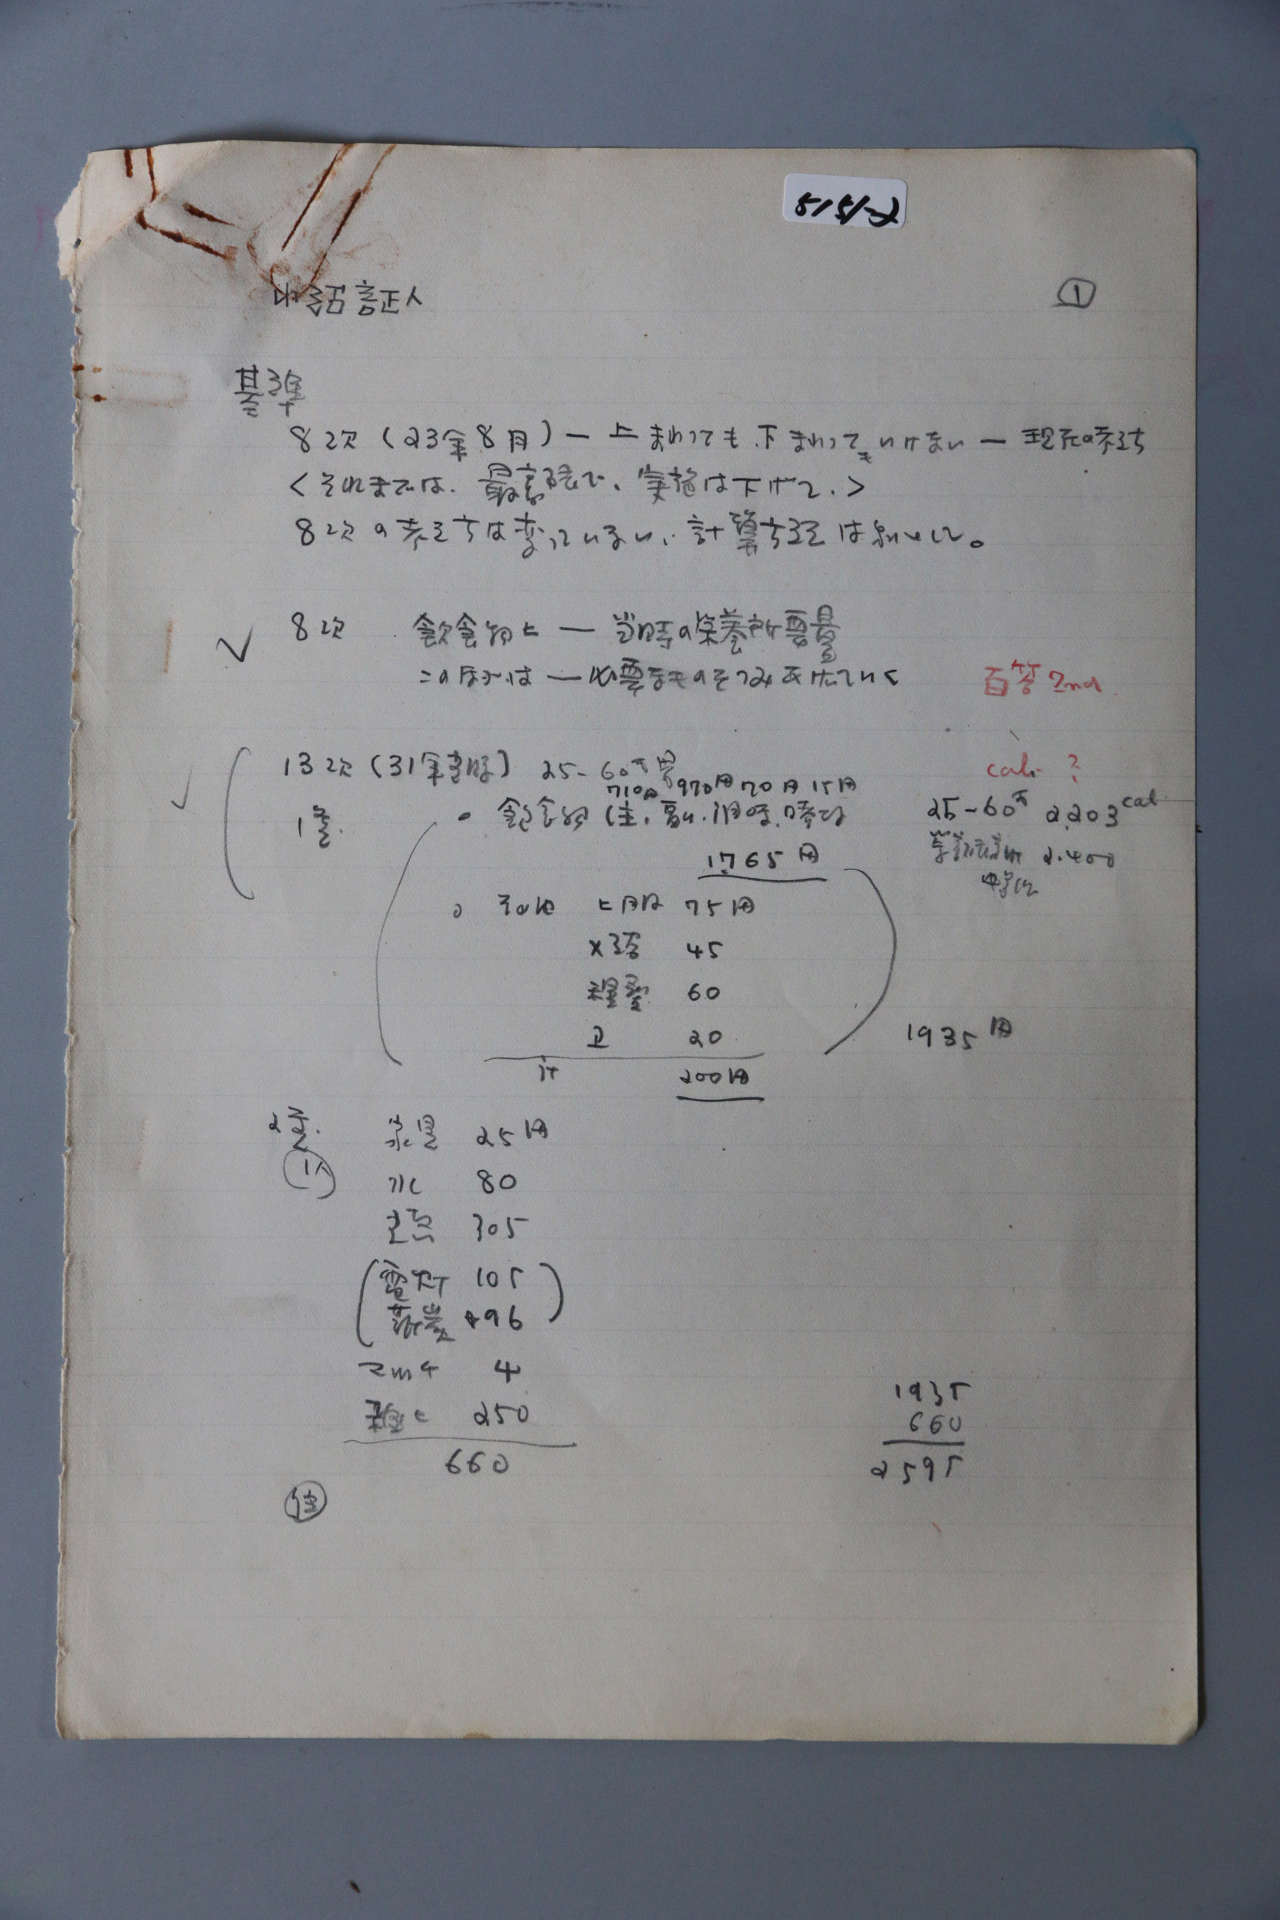 5151-2
小沼証人
①
基準
8次（23年8月）— 上まわっても下まわってもいけない — 現在の考え方
＜それまでは、最高額で、実施は下げて、＞
8次の考え方は変っていない、計算方法は
8次 飲食物ヒ — 当時の栄養所要量
この他は — 必要なものをつみあげていく
百答 2nd
13次（31年当時） 25-60才男
cal. ?
710円 970円 70円 15円
25-60才 2,203cal
1類 飲食物（主、副、調味、嗜好
2,400
1765円
その他 ヒ服 75円
45
理髪 60
20
1935円
計 200円
2類 家具 25円
1人
水 80
光熱 305
（電灯 105
薪炭 196）
4
雑ヒ 250
660
1935
660
2595
住